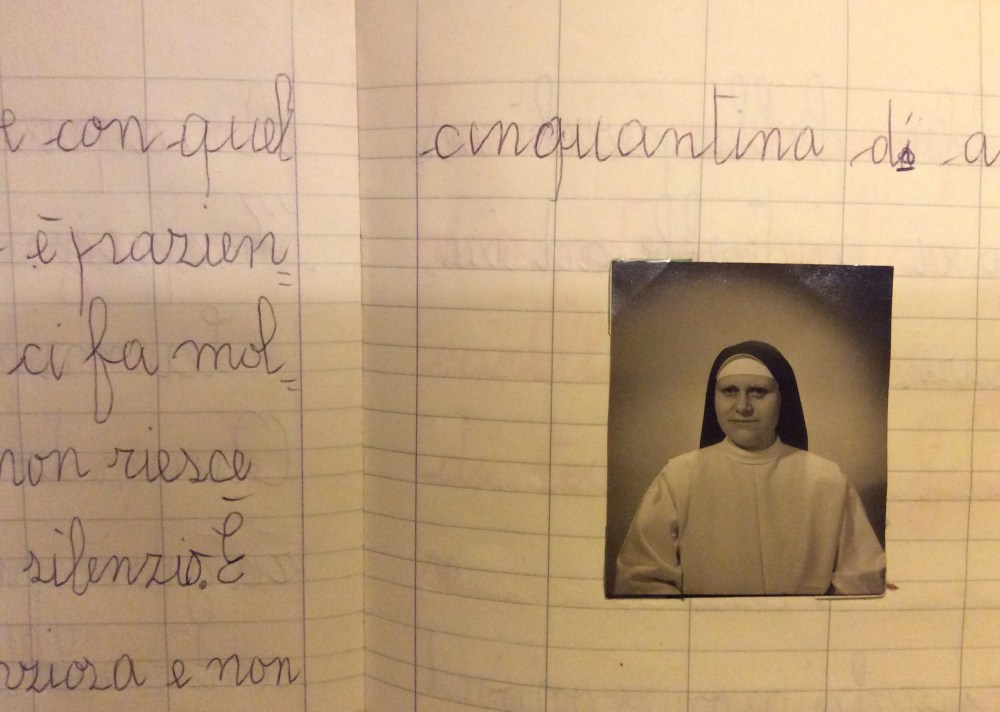 e con quel
è pazien=
ci fa mol=
non riesce
silenzio. È
e non
cinquantina di a